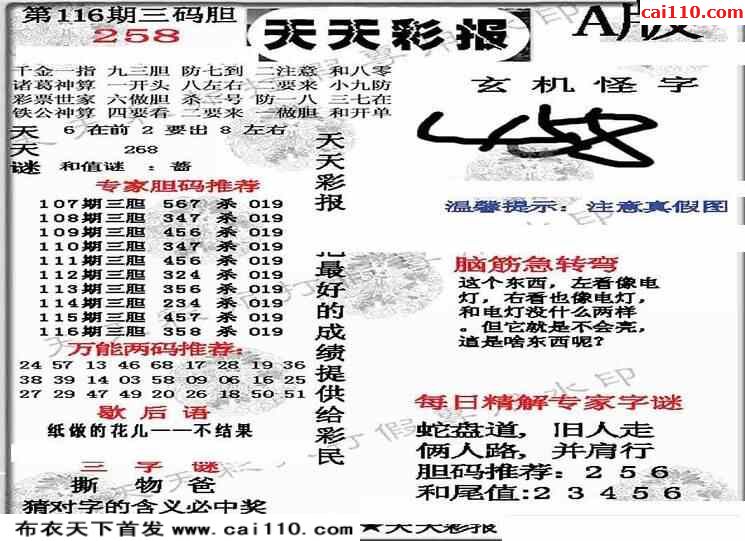 第116期三码胆
258
天天彩报
A版
cai110.com
千金一指 九三胆 防七到 二注意 和八零
诸葛神算 一开头 八左右 二要来 小九防
彩票世家 六做胆 杀二号 防一八 三七在
铁公神算 四要看 二要来 一做胆 和开单
天 6 在前 2 要出 8 左右
天 268
谜 和值谜 :
专家胆码推荐
107期三胆 567 杀 019
108期三胆 347 杀 019
109期三胆 456 杀 019
110期三胆 347 杀 019
111期三胆 456 杀 019
112期三胆 324 杀 019
113期三胆 356 杀 019
114期三胆 234 杀 019
115期三胆 457 杀 019
116期三胆 358 杀 019
万能两码推荐:
24 57 13 46 68 17 28 19 36
38 39 14 03 58 09 06 16 25
27 29 47 49 20 26 18 50 51
歇后语
纸做的花儿——不结果
三字谜
撕 物 爸
猜对字的含义必中奖
天天彩报
把最好的成绩提供给彩民
玄机怪字
温馨提示: 注意真假图
脑筋急转弯
这个东西，左看像电
灯，右看也像电灯，
和电灯没什么两样
。但它就是不会亮，
這是啥东西呢?
每日精解专家字谜
蛇盘道, 旧人走
俩人路, 并肩行
胆码推荐: 2 5 6
和尾值:2 3 4 5 6
布衣天下首发 www.cai110.com
★天天彩报